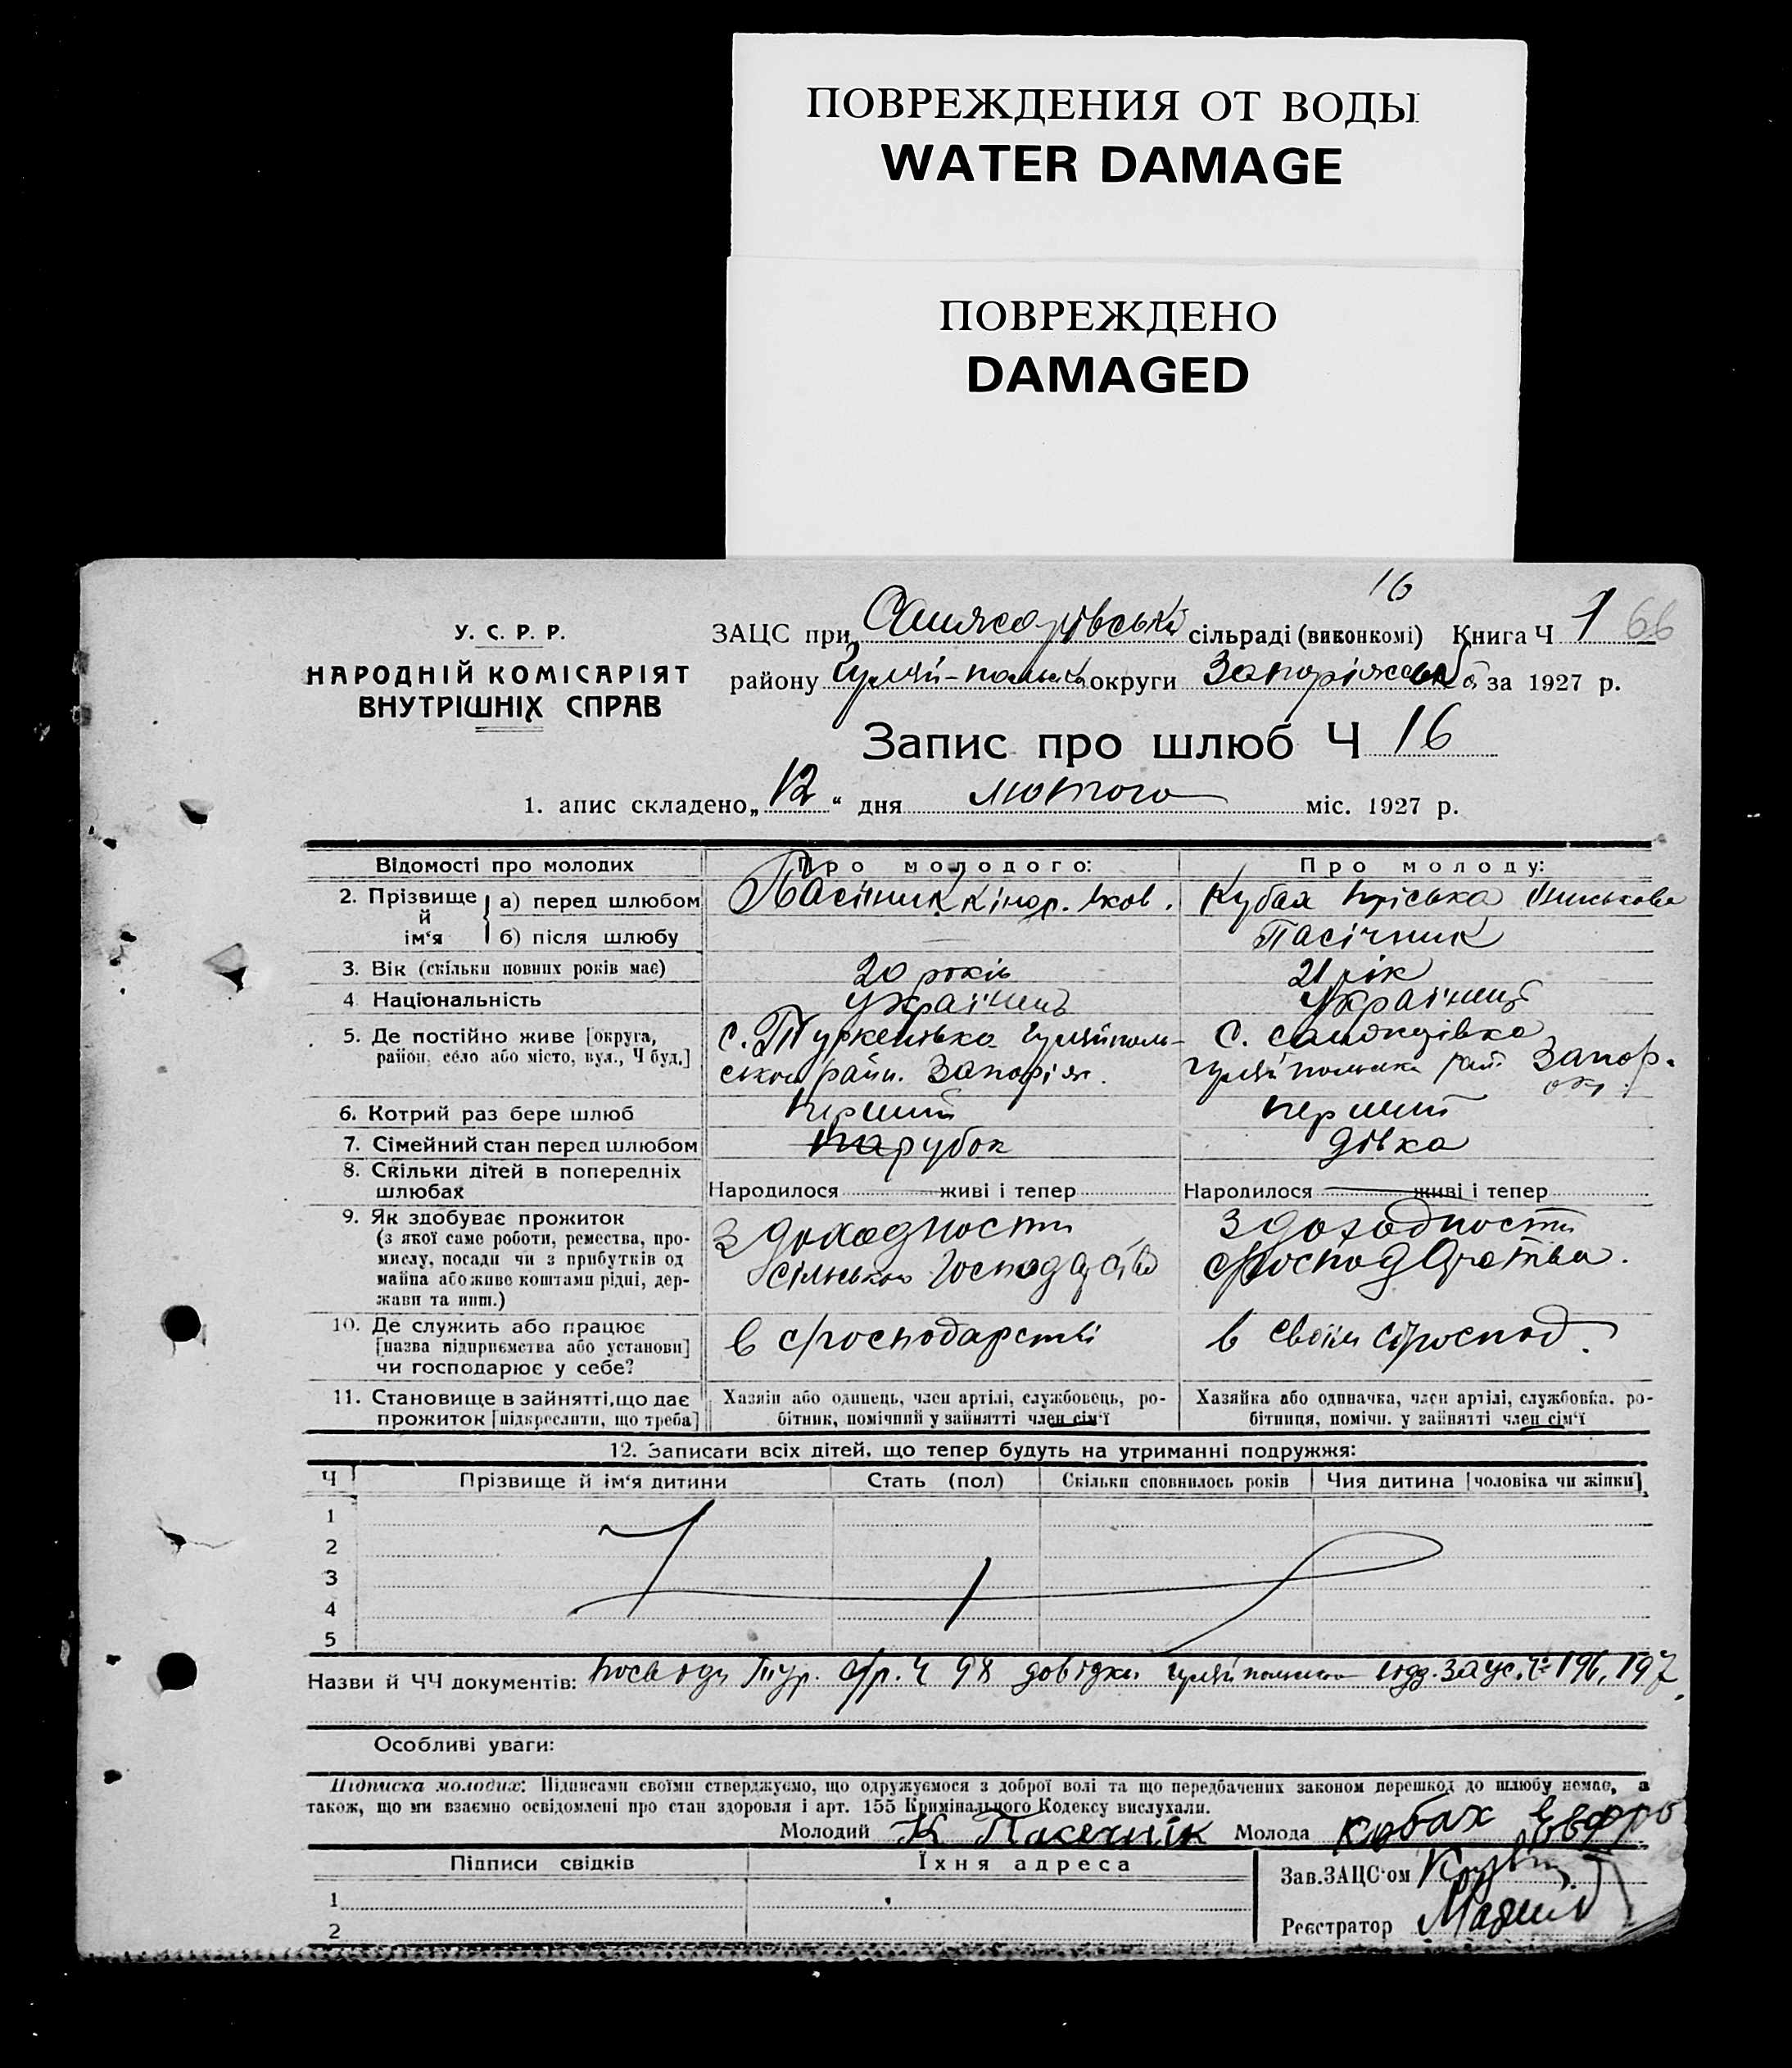 ПОВРЕЖДЕНИЯ ОТ ВОДЫ
WATER DAMAGE
ПОВРЕЖДЕНО
DAMAGED
16
У. С. Р. Р.
НАРОДНІЙ КОМІСАРІЯТ
ВНУТРІШНІХ СПРАВ
ЗАЦС при сільраді (виконкомі) Книга Ч 1 66
району Гуляй-польськ округи Запоріжськ за 1927 р.
Запис про шлюб Ч 16
1. апис складено „12“ дня лютого міс. 1927 р.
Відомості про молодих Про молодого: Про молоду:
2. Прізвище й ім‘я
а) перед шлюбом Пасічник Яков. Кубах Пріська
б) після шлюбу Пасічник
3. Вік (скільки повних років має) 20 років 21 рік
4 Національність Українець Українец
5. Де постійно живе [округа, район, село або місто, вул., Ч буд.]
с. Туркенівка Гуляйполь-
ськ райн. Запоріж.
с.
Гуляйпольськ рай Запор.
окр.
6. Котрий раз бере шлюб перший перший
7. Сімейний стан перед шлюбом парубок дівка
8. Скільки дітей в попередніх шлюбах
Народилося живі і тепер Народилося живі і тепер
9. Як здобуває прожиток
(з якої саме роботи, ремества, про-
мислу, посади чи з прибутків од
майна або живе коштами рідні, дер-
жави та инш.)
З доходности
сільського
З доходности
10. Де служить або працює
[назва підприємства або установи]
чи господарює у себе?
в с/господарстві
в своїм с/господ.
11. Становище в зайнятті, що дає
прожиток [підкреслити, що треба]
Хазяїн або одинець, член артілі, службовець, ро-
бітник, помічний у зайнятті член сім‘ї
Хазяйка або одиначка, член артілі, службовка, ро-
бітниця, помічн. у зайнятті член сім‘ї
12. Записати всіх дітей, що тепер будуть на утриманні подружжя:
Ч Прізвище й ім‘я дитини Стать (пол) Скільки сповнилось років Чия дитина [чоловіка чи жінки]
1
2
3
4
5
Назви й ЧЧ документів: Тур. с/р. Ч 98 довідки 196, 197
Особливі уваги:
Підписка молодих: Підписами своїми стверджуємо, що одружуємося з доброї волі та що передбачених законом перешкод до шлюбу немає, а
також, що ми взаємно освідомлені про стан здоровля і арт. 155 Кримінального Кодексу вислухали.
Молодий К Пасечнік Молода Кубах Евфро
Підписи свідків Їхня адреса
Зав.ЗАЦС‘ом
1
Реєстратор
2